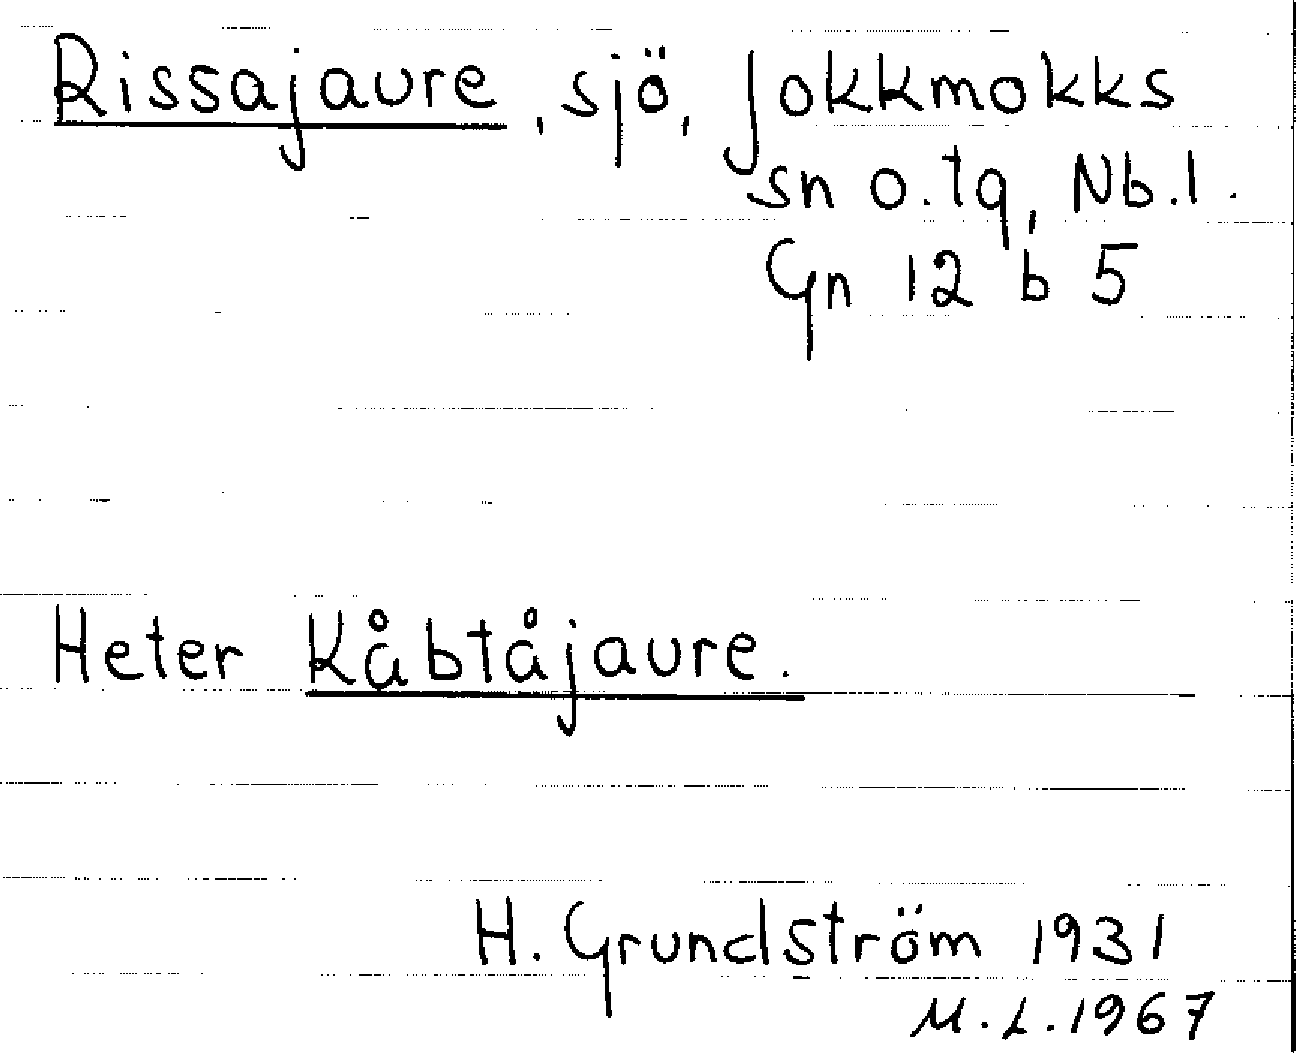 Rissajaure, sjö, Jokkmokks
sn o.tg, Nb.l.
Gn 12 b 5
Heter Kåbtåjaure.
H. Grundström 1931
M.L.1967